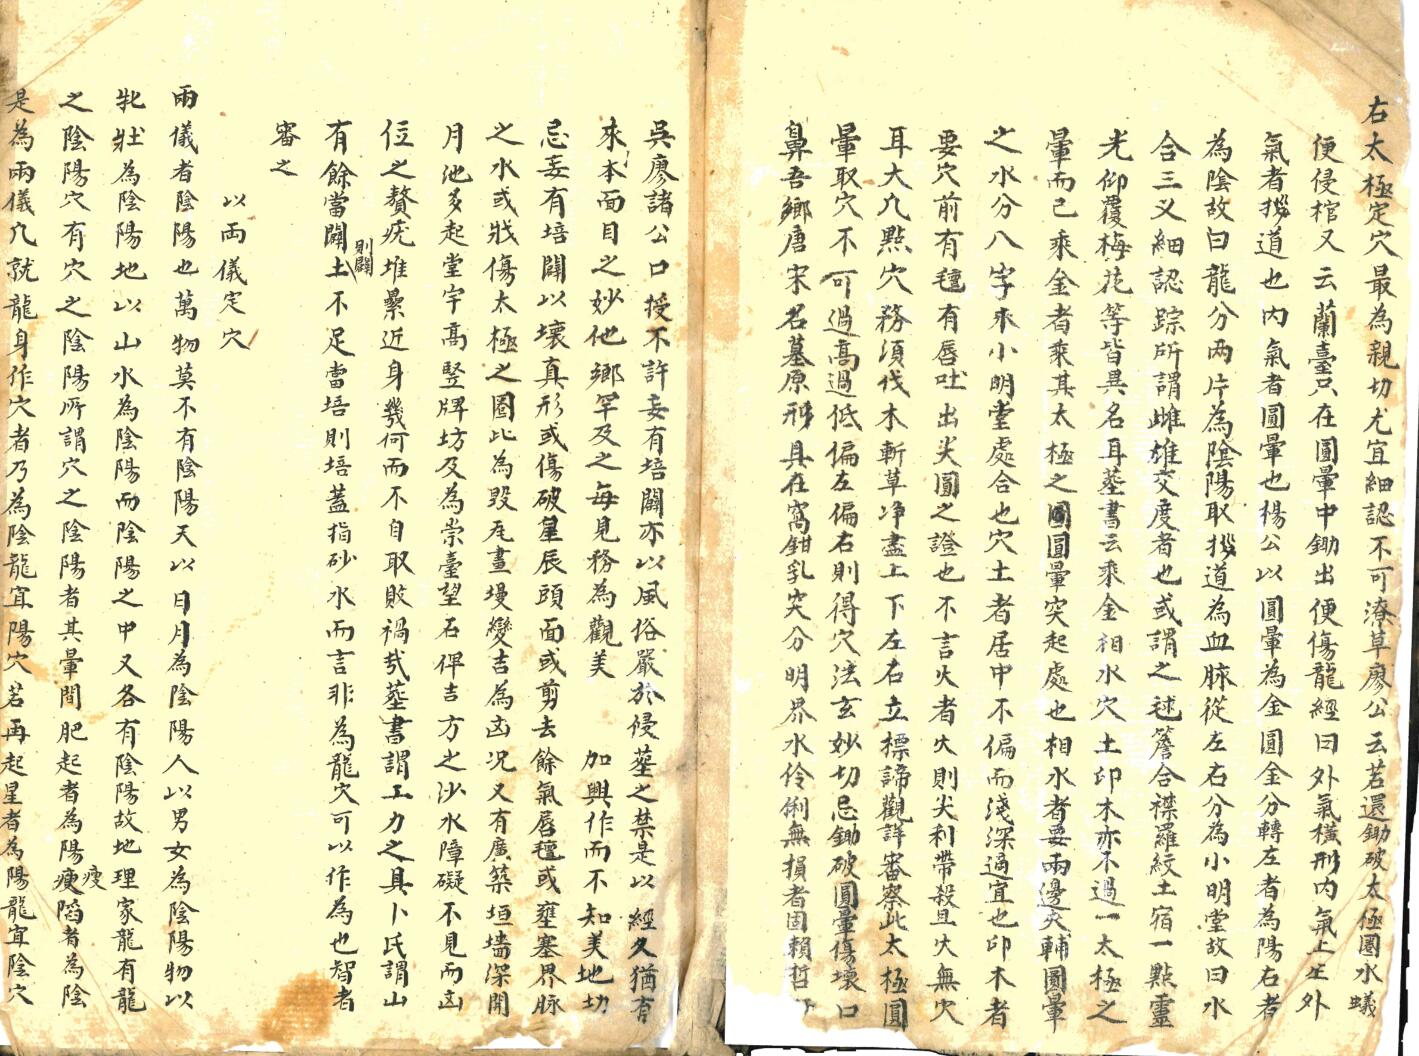 右太極定穴最為親切尤宜細認不可潦草廖公云若還鋤破太極圈水蟻
便侵棺又云蘭臺只在圓暈中鋤出便傷龍經曰外氣橫形內氣上生外
氣者拶道也內氣者圓暈也楊公以圓暈為金圓金分轉左者為陽右者
為陰故曰龍分两片為陰陽取拶道為血脉從左右分為小明堂故曰水
合三叉細認踪所謂雌雄交度者也或謂之毬簷合襟羅紋土宿一點靈
光仰覆梅花等皆異名耳塟書云乘金相水穴土印木亦不過一太極之
暈而已乘金者乘其太極之圓圓暈突起處也相水者要兩邊夾輔圓暈
之水分八字來小明堂處合也穴土者居中不偏而淺深適宜也印木者
要穴前有氊有唇吐出尖圓之證也不言火者火則尖利帶殺且火無穴
耳大凢點穴務須伐木斬草净盡上下左右立標諦觀詳審察此太極圓
暈取穴不可過高過低偏左偏右則得穴法玄妙切忌鋤破圓暈傷壞口
鼻吾鄉唐宋名墓原形具在窩鉗乳突分明界水伶俐無損者固賴哲
吳廖諸公口授不許妄有培闢亦以風俗嚴於侵塟之禁是以經久猶有
來本面目之妙他鄉罕及之每見務為觀美加興作而不知美地切
忌妄有培闢以壞真形或傷破星辰頭面或剪去餘氣唇氊或壅塞界脉
之水或戕傷太極之圈此為毀瓦畫墁變吉為凶况又有廣築垣墻深開
月池多起堂宇高竪牌坊及為崇臺望石俾吉方之沙水障礙不見而凶
位之贅疣堆纍近身幾何而不自取敗禍㢤塟書謂工力之具卜氏謂山
有餘當闢則闢土不足當培則培蓋指砂水而言非為龍穴可以作為也智者
審之
以両儀定穴
兩儀者陰陽也萬物莫不有陰陽天以日月為陰陽人以男女為陰陽物以
牝牡為陰陽地以山水為陰陽而陰陽之中又各有陰陽故地理家龍有龍
之陰陽穴有穴之陰陽所謂穴之陰陽者其暈間肥起者為陽瘦瘦䧟者為陰
是為兩儀凢就龍身作穴者乃為陰龍宜陽穴若再起星者為陽龍宜陰穴